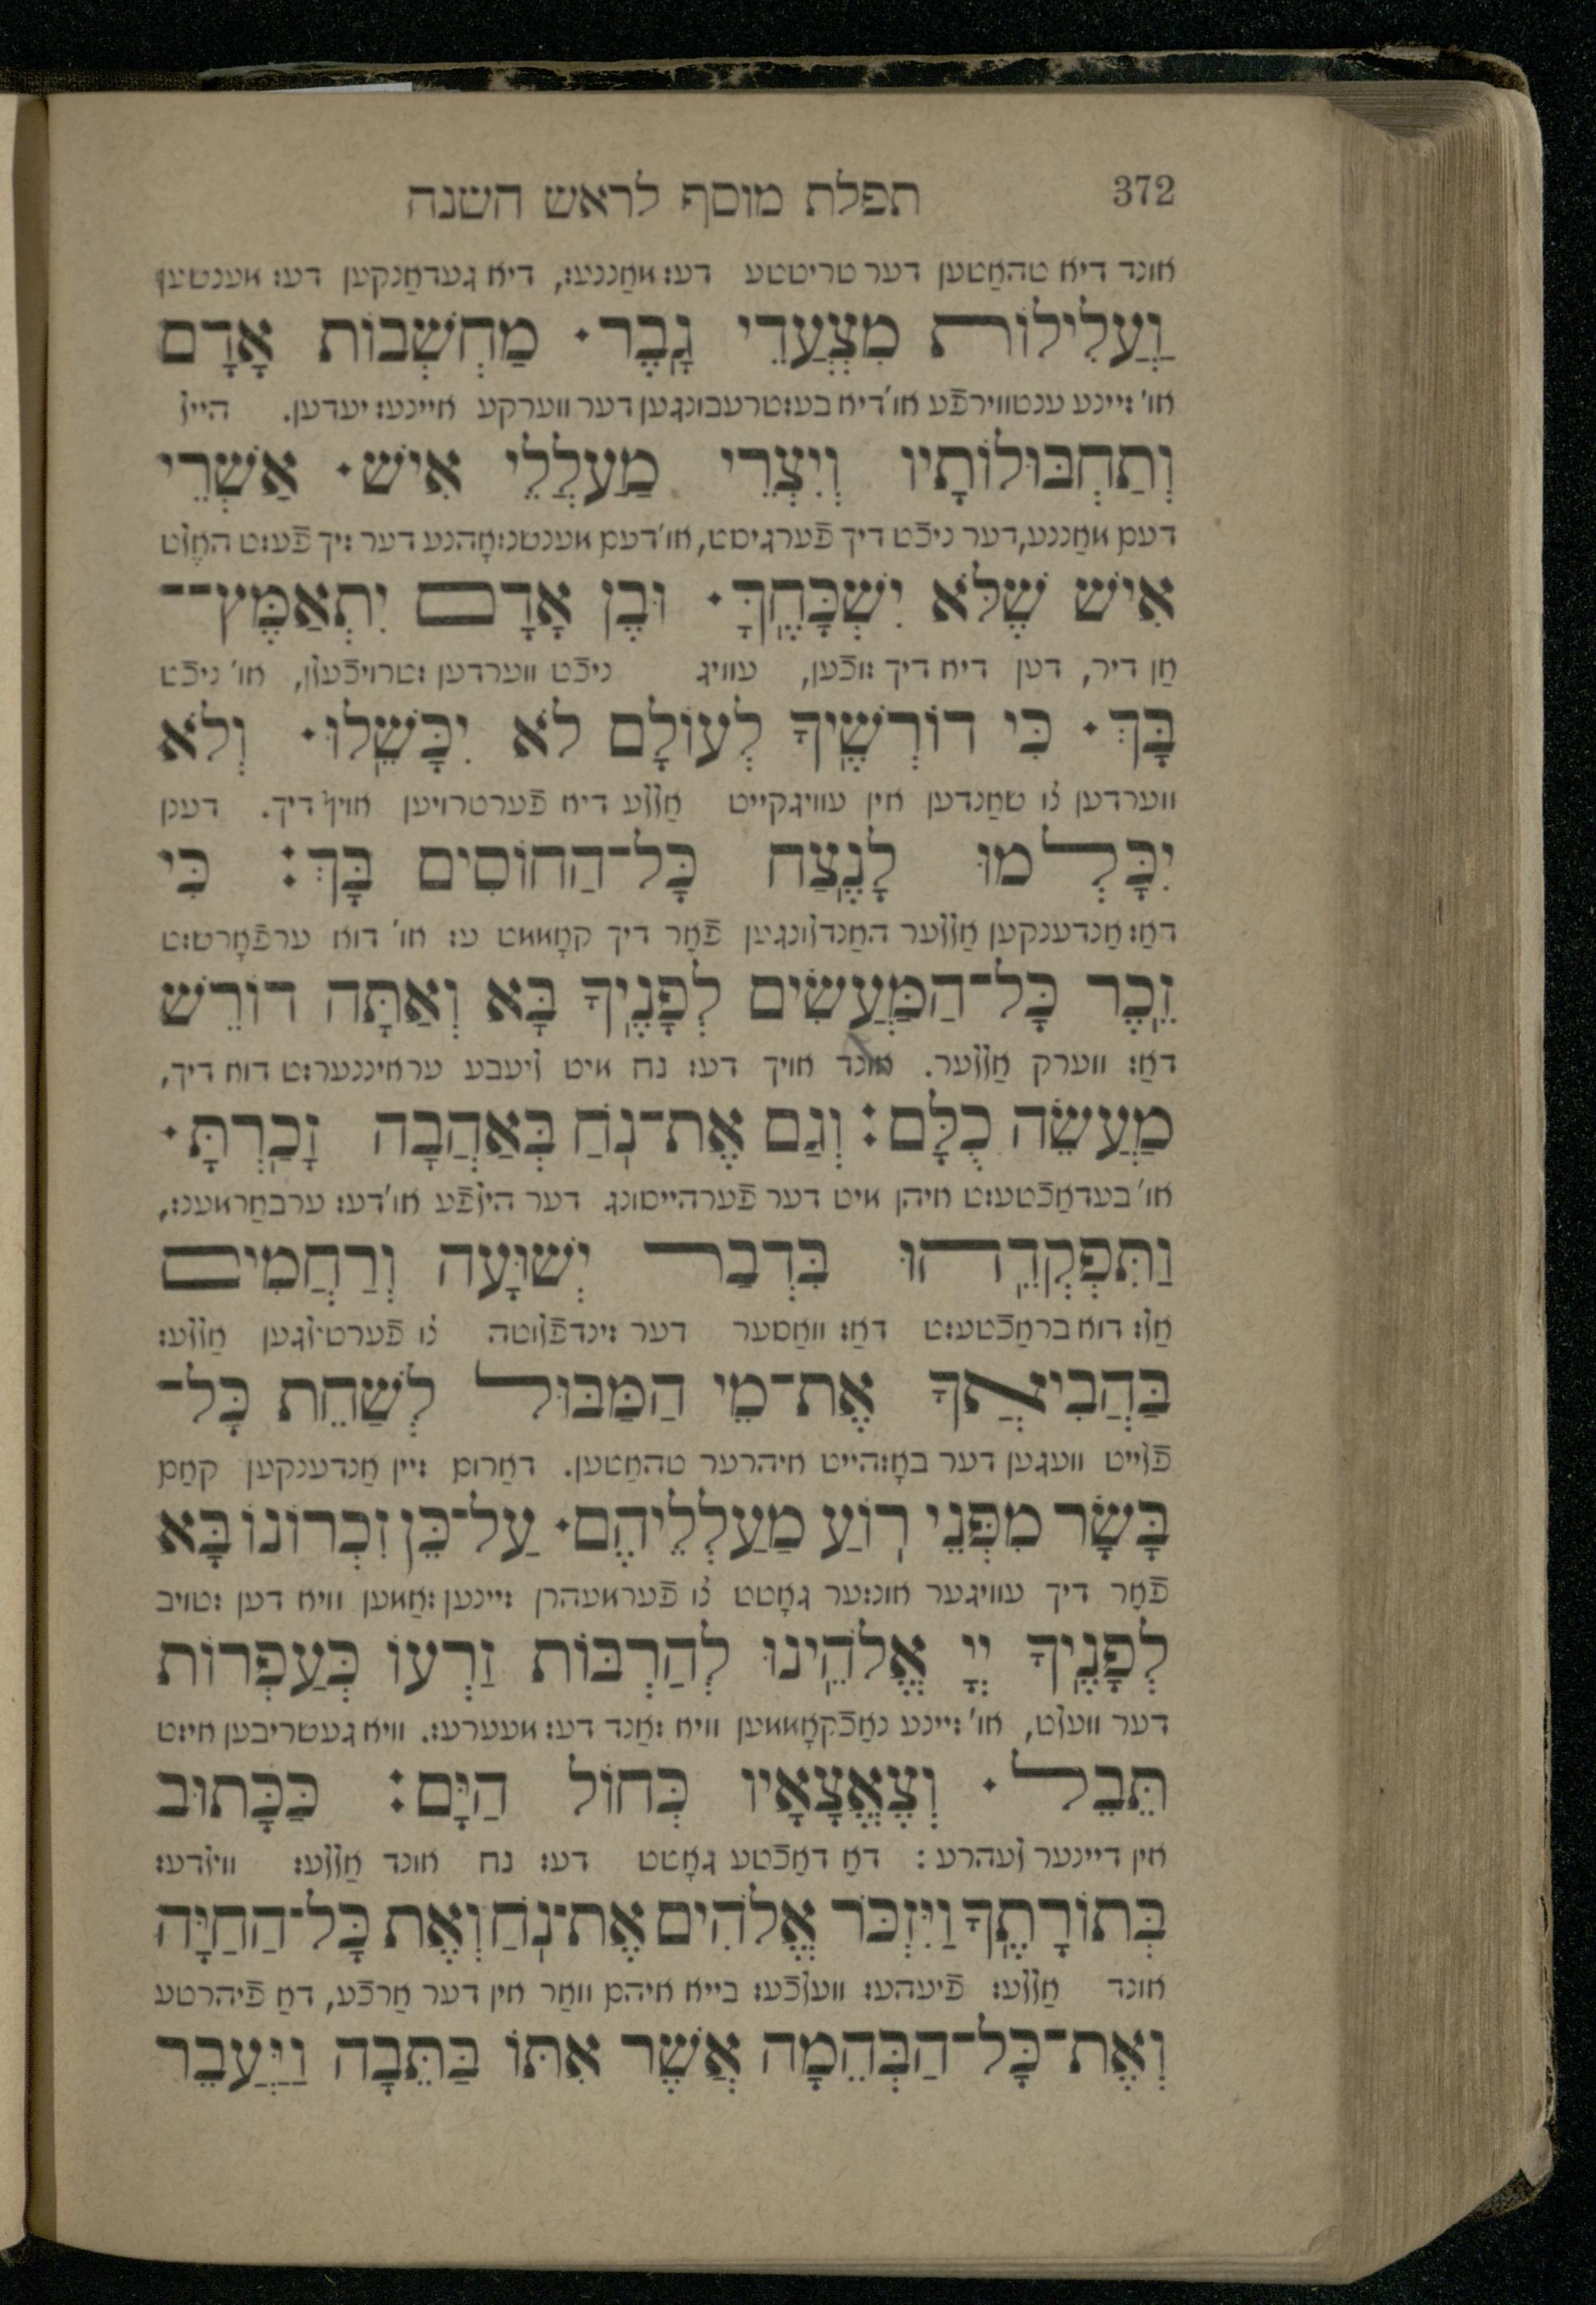 372 תפלת מוסף לראש השנה
אונד דיא טהאַטען דער טריטטע דעז מאַננעז, דיא געדאַנקען דעז מענשען
וַעֲלִילוֹת מִצְעֲדֵי גָבֶר· מַחְשְׁבוֹת אָדָם
או׳ זיינע ענטווירפֿע או׳ דיא בעשטרעבונגען דער ווערקע איינעז יעדען. הייל
וְתַחְבּוּלוֹתָיו וְיִצְרֵי מַעַלְלֵי אִישׁ· אַשְׁרֵי
דעם מאַננע, דער ניכֿט דיך פֿערגיסט, או׳ דעם מענשנזאָהנע דער זיך פֿעסט האַלט
אִישׁ שֶׁלֹּא יִשְׁכָּחֶךָּ· וּבֶן אָדָם יִתְאַמֶּץ־
אַן דיר, דען דיא דיך זוכֿען, עוויג ניכֿט ווערדען שטרויכֿעלן, או׳ ניכֿט
בָּךְ· כִּי דוֹרְשֶׁיךָ לְעוֹלָם לֹא יִכָּשֵׁלוּ· וְלֹא
ווערדען צו שאַנדען אין עוויגקייט אַללע דיא פֿערטרויען אויף דיך. דענן
יִכָּלְמוּ לָנֶצַח כָּל־הַחוֹסִים בָּךְ: כִּי
דאַז אַנדענקען אַללער האַנדלונגען פֿאָר דיך קאָממט עז או׳ דוא ערפֿאָרשט
זֵכֶר כָּל־הַמַּעֲשִׂים לְפָנֶיךָ בָּא וְאַתָּה דוֹרֵשׁ
דאַז ווערק אַללער. אונד אויך דעז נח מיט ליעבע עראיננערסט דוא דיך,
מַעֲשֵׂה כֻלָּם: וְגַם אֶת־נֹחַ בְּאַהֲבָה זָכַרְתָּ·
או׳ בעדאַכֿטעסט איהן מיט דער פֿערהייסונג דער הילפֿע או׳ דעז ערבאַרמענז,
וַתִּפְקְדֵהוּ בִּדְבַר יְשׁוּעָה וְרַחֲמִים
אַלז דוא בראַכֿטעסט דאַז וואַסער דער זינדפֿלוטה צו פֿערטילגען אַללעז
בַּהֲבִיאֲךָ אֶת־מֵי הַמַּבּוּל לְשַׁחֵת כָּל־
פֿלייש וועגען דער באָזהייט איהרער טהאַטען. דאַרום זיין אַנדענקען קאַם
בָּשָׂר מִפְּנֵי רֽוֹעַ מַעַלְלֵיהֶם· עַל־כֵּן זִכְרוֹנוֹ בָּא
פֿאָר דיך עוויגער אונזער גאָטט צו פֿערמעהרן זיינען זאַמען וויא דען שטויב
לְפָנֶיךָ יְיָ אֱלֹהֵינוּ לְהַרְבּוֹת זַרְעוֹ כְּעַפְרוֹת
דער וועלט, או׳ זיינע נאַכֿקאָממען וויא זאַנד דעז מעערעז. וויא געשריבען איזט
תֵּבֵל· וְצֶאֱצָאָיו כְּחוֹל הַיָּם: כַּכָּתוּב
אין דיינער לעהרע: דאַ דאַכֿטע גאָטט דעז נח אונד אַללעז ווילדעז
בְּתוֹרָתֶךָ וַיִּזְכֹּר אֱלֹהִים אֶת־נֹחַ וְאֶת כָּל־הַחַיָּה
אונד אַללעז פֿיעהעז וועלכֿעז בייא איהם וואַר אין דער אַרכֿע, דאַ פֿיהרטע
וְאֶת־כָּל־הַבְּהֵמָה אֲשֶׁר אִתּוֹ בַּתֵּבָה וַיַּעֲבֵר